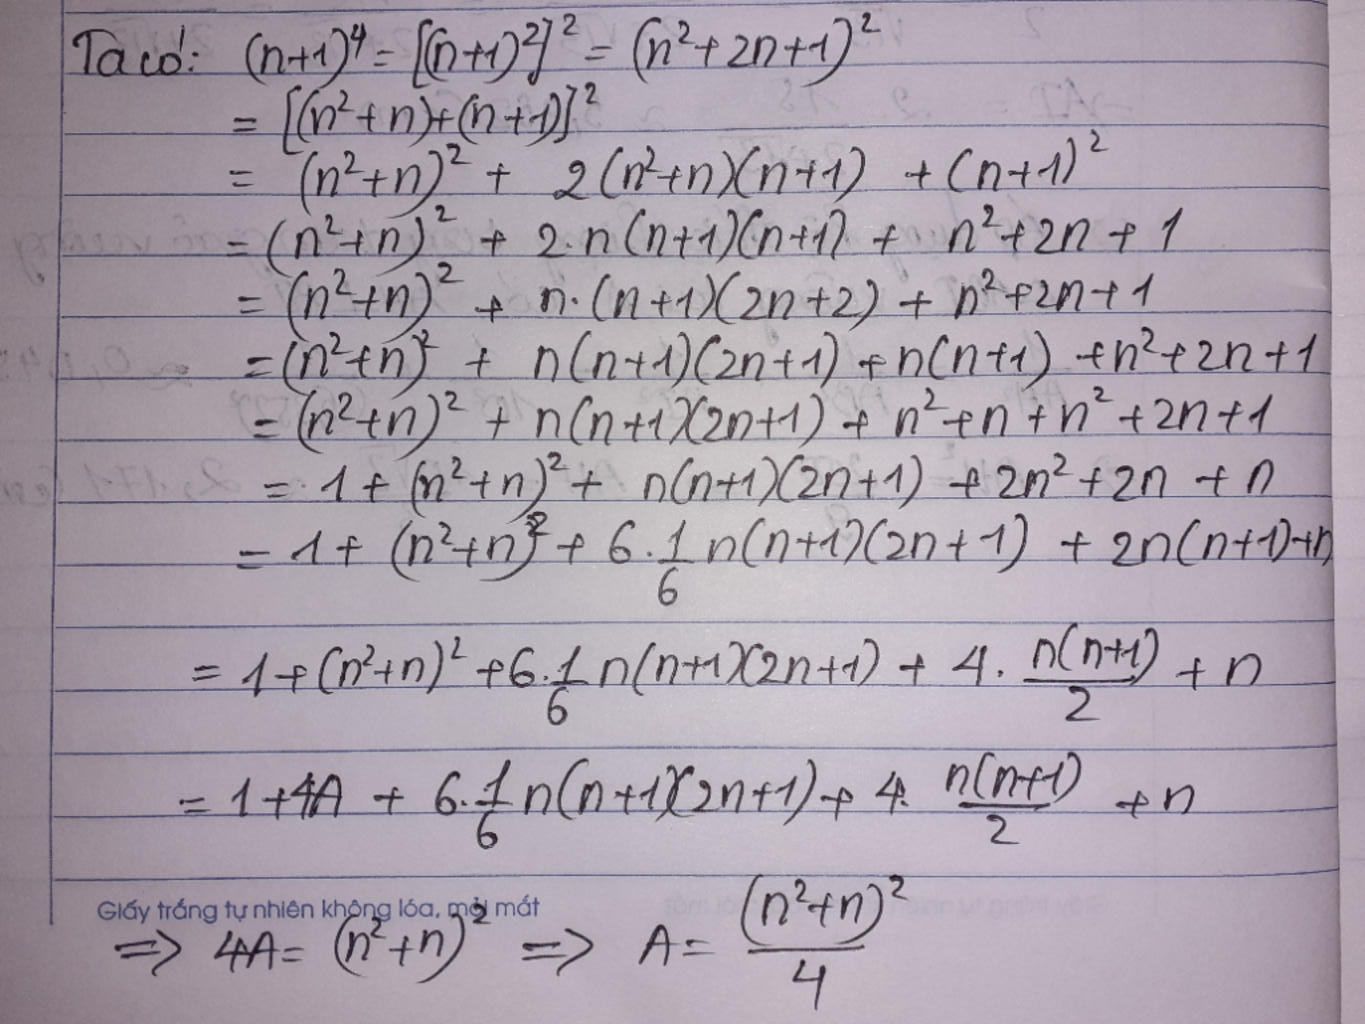 Ta có: (n+1)⁴ = [(n+1)²]² = (n²+2n+1)²
= [(n²+n)+(n+1)]²
= (n²+n)² + 2(n²+n)(n+1) + (n+1)²
= (n²+n)² + 2.n(n+1)(n+1) + n²+2n+1
= (n²+n)² + n.(n+1)(2n+2) + n²+2n+1
= (n²+n)² + n(n+1)(2n+1) + n(n+1) + n²+2n+1
= (n²+n)² + n(n+1)(2n+1) + n²+n+n²+2n+1
= 1 + (n²+n)² + n(n+1)(2n+1) + 2n²+2n + n
= 1 + (n²+n)² + 6.1/6 n(n+1)(2n+1) + 2n(n+1)+n
= 1+(n²+n)² + 6.1/6 n(n+1)(2n+1) + 4. n(n+1)/2 + n
= 1+4A + 6.1/6 n(n+1)(2n+1) + 4. n(n+1)/2 + n
Giấy trắng tự nhiên không lóa, mỏi mắt
=> 4A = (n²+n)² => A = (n²+n)²/4